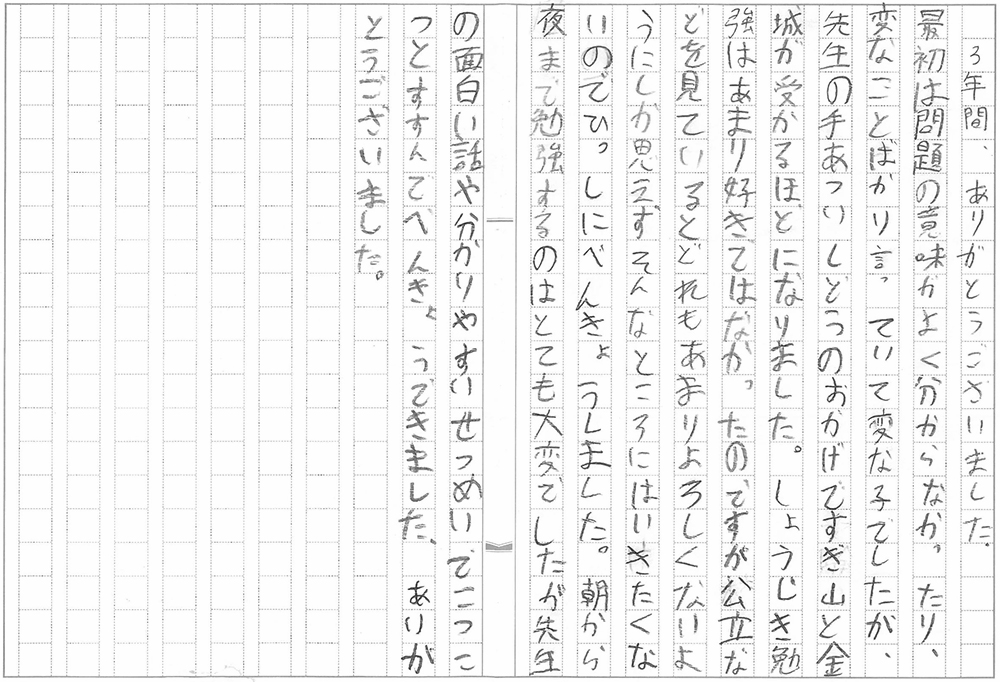 3年間、ありがとうございました。
最初は問題の意味がよく分からなかったり、
変なことばかり言っていて変な子でしたが、
先生の手あついしどうのおかげですぎ山と金
城が受かるほどになりました。しょうじき勉
強はあまり好きではなかったのですが公立な
どを見ているとどれもあまりよろしくないよ
うにしか思えずそんなところにはいきたくな
いのでひっしにべんきょうしました。朝から
夜まで勉強するのはとても大変でしたが先生
の面白い話や分かりやすいせつめいでこつこ
つとすすんでべんきょうできました、ありが
とうございました。